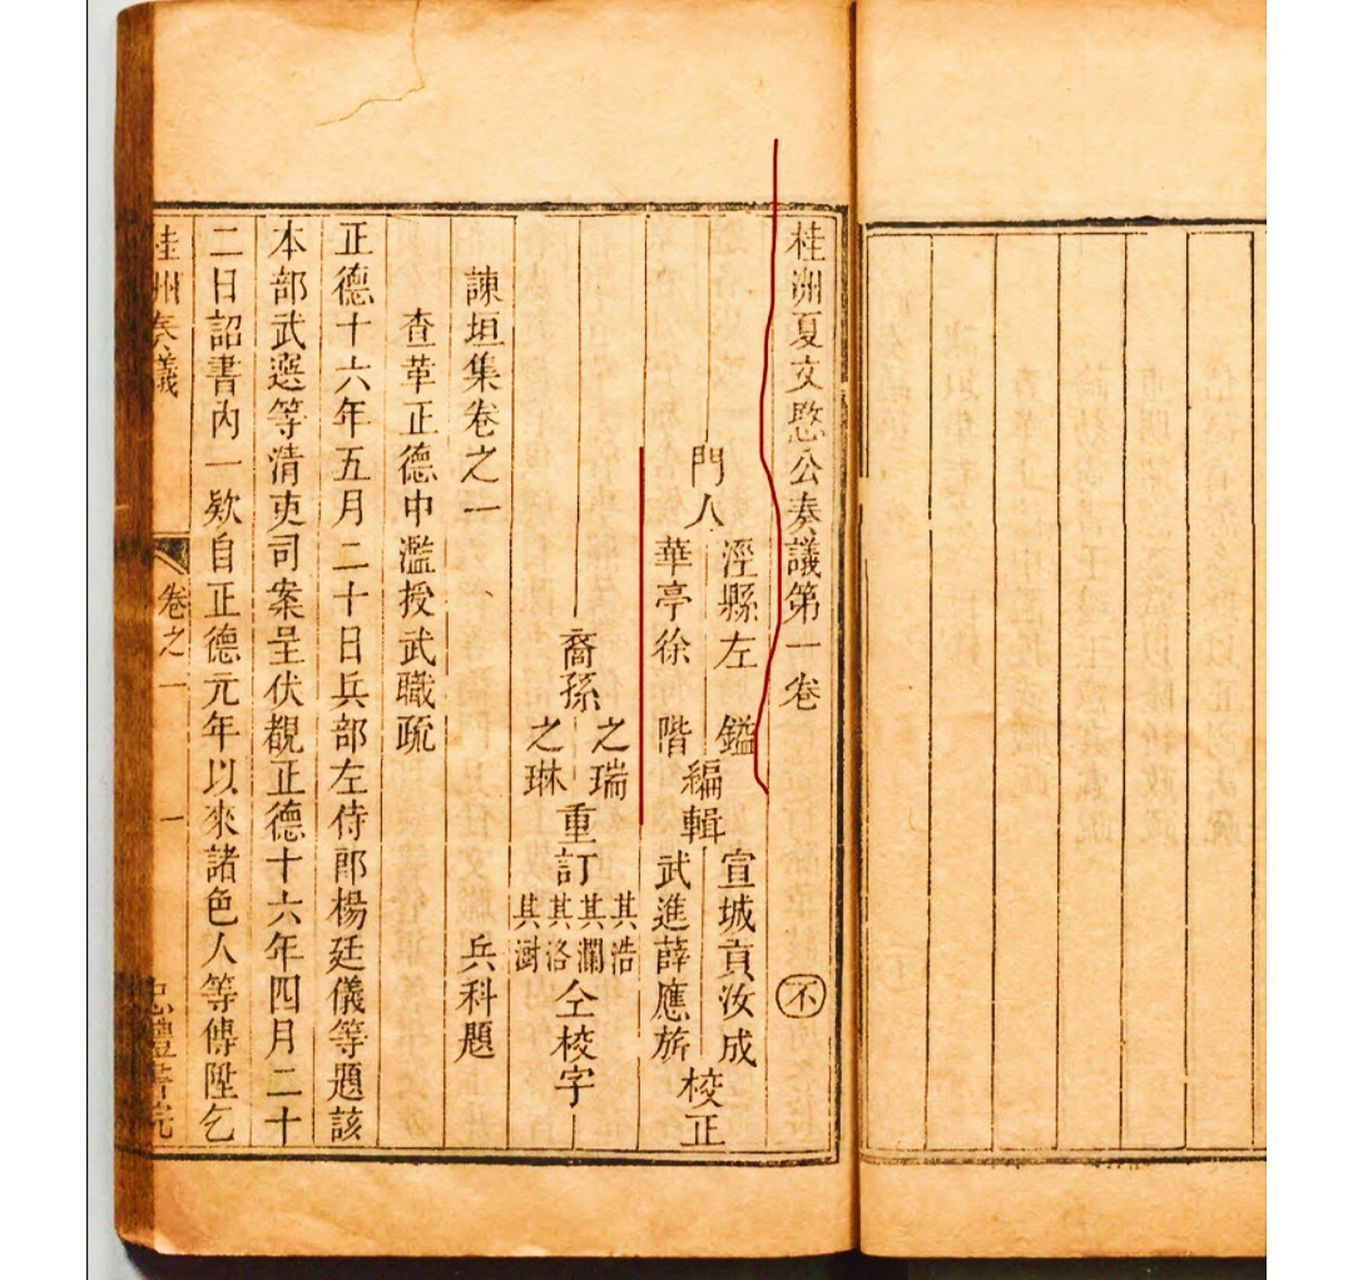 桂洲夏文愍公奏議第一卷 不
門人 涇縣左 鎰 華亭徐 階 編輯 宣城貢汝成 武進薛應旂 校正
裔孫 之瑞 之琳 重訂 其浩 其瀾 其洛 其澍 仝校字
諫垣集卷之一 兵科題
查革正德中濫授武職疏
正德十六年五月二十日兵部左侍郎楊廷儀等題該
本部武選等清吏司案呈伏覩正德十六年四月二十
二日詔書內一欵自正德元年以來諸色人等傳陞乞
桂州奏議 卷之一 一 忠禮書院